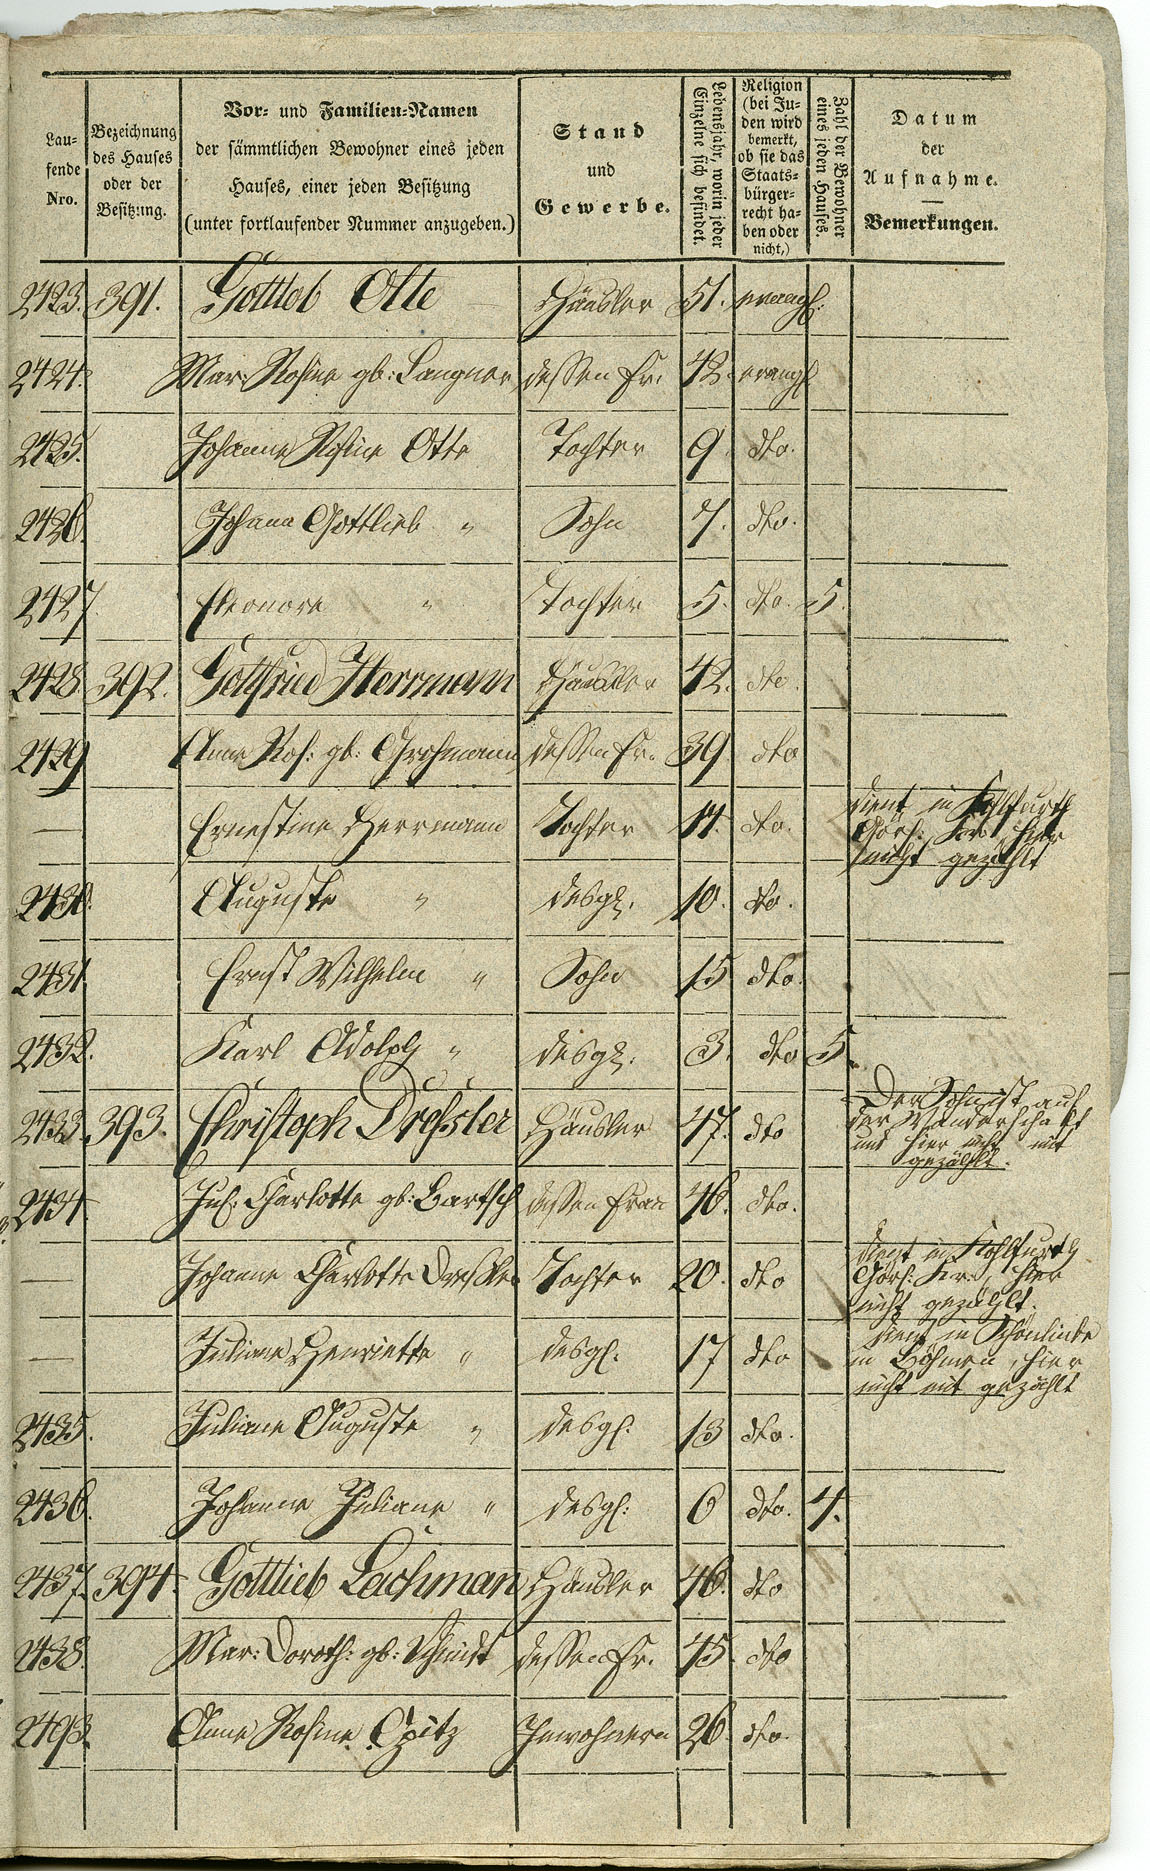 Laufende Nro.
Bezeichnung des Hauses oder der Besitzung.
Vor- und Familien-Namen
der sämmtlichen Bewohner eines jeden
Hauses, einer jeden Besitzung
(unter fortlaufender Nummer anzugeben.)
Stand
und
Gewerbe.
Lebensjahr, worin jeder Einzelne sich befindet.
Religion (bei Juden wird bemerkt, ob sie das Staatsbürgerrecht haben oder nicht,)
Zahl der Bewohner eines jeden Hauses.
Datum
der
Aufnahme.
Bemerkungen.
2423. 391. Gottlob Otte Häusler 51. evangl:
2424. Mar: Rosine gb: Langner dessen Fr. 42. evangl
2425. Johanne Rosine Otte Tochter 9 dto.
2426. Johann Gottlieb " Sohn 7. dto.
2427 Eleonore " Tochter 5. dto. 5.
2428. 392. Gottfried Herrmann Häusler 42. dto.
2429 Anne Ros: gb: Grohmann dessen Fr. 39. dto
— Ernestine Herrmann Tochter 17. dto. dient in Kohlfurth
Görl: Kr: hier
nicht gezählt
2430. Auguste " desgl. 10. dto.
2431. Ernst Wilhelm " Sohn 15 dto.
2432. Karl Adolph " desgl. 3. dto 5.
2433. 393. Christoph Dreßler Häusler 47. dto Der Sohn ist auf
der Wanderschaft
und hier nicht mit
gezählt.
2434. Jul: Charlotte gb: Bartsch dessen Frau 46. dto.
— Johanne Charlotte Dreßler Tochter 20. dto dient in Kohlfurth
Görl: Kr:, hier
nicht gezählt.
— Juliane Henriette " desgl. 17 dto dient in Schönlinde
in Böhmen, hier
nicht mit gezählt
2435. Juliane Auguste " desgl: 13 dto.
2436. Johanne Juliane " desgl: 6 dto. 4.
2437. 394. Gottlieb Lachman Häusler 46. dto
2438. Mar: Doroth: gb: Schmidt dessen Fr. 45. dto
2493. Anne Rosine Opitz Inwohnern 26. dto.